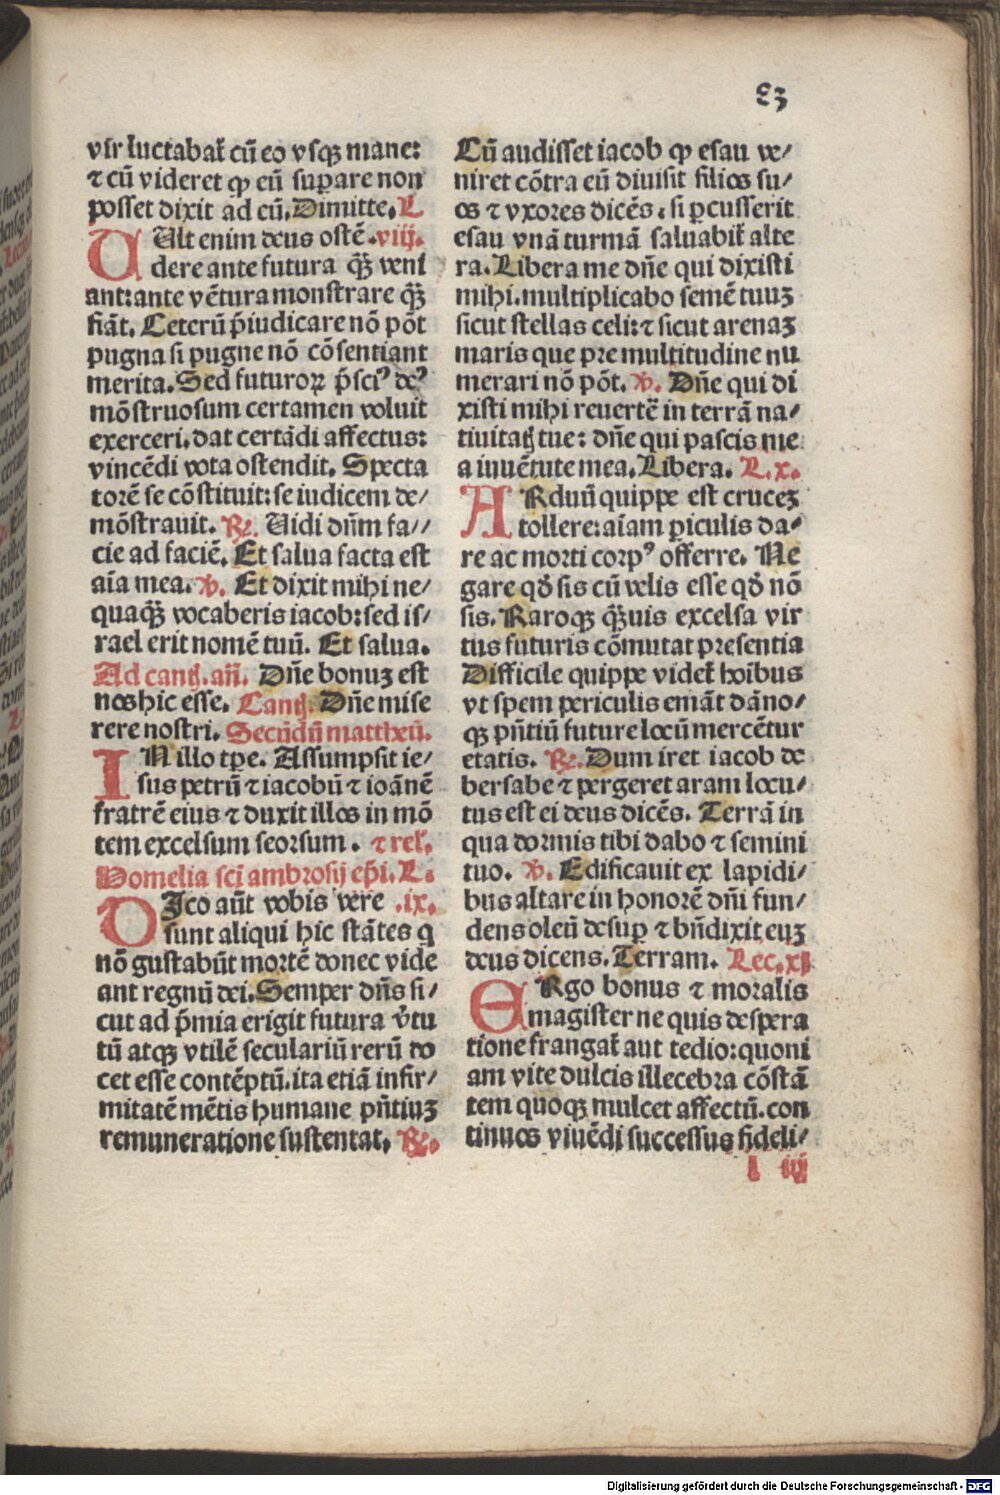 83
vir luctabat᷑ cū eo vsqꝫ mane:
⁊ cū videret ꝙ eū suꝑare non
posset dixit ad eū. Dimitte. L
UUlt enim deus ostē .viij.
dere ante futura qꝫ̄ veni
ant: ante vētura monstrare qꝫ̄
fiāt. Ceterū p̄iudicare nō pōt
pugna si pugne nō cōsentiant
merita. Sed futuroꝝ p̄sciꝰ deꝰ
mōstruosum certamen voluit
exerceri. dat certādi affectus:
vincēdi vota ostendit. Specta
torē se cōstituit: se iudicem de/
mōstrauit. ℞. Uidi dn̄m fa//
cie ad faciē. Et salua facta est
aīa mea. ℣. Et dixit mihi ne/
quaqꝫ̄ vocaberis iacob: sed is/
rael erit nomē tuū. Et salua.
Ad cantꝭ. an̄. Dn̄e bonuꝫ est
nos hic esse. Cantꝭ. Dn̄e mise
rere nostri. Secūdū mattheū.
IN illo tꝑe. Assumpsit ie/
sus petrū ⁊ iacobū ⁊ ioānē
fratrē eius ⁊ duxit illos in mō
tem excelsum seorsum. ⁊ rel̄.
Homelia sci ambrosij ep̄i. L.
DIco aūt vobis vere .ix.
sunt aliqui hic stātes q
nō gustabūt mortē donec vide
ant regnū dei. Semper dn̄s si/
cut ad p̄mia erigit futura v̄tu
tū atqꝫ vtilē seculariū rerū do
cet esse contēptū. ita etiā infir/
mitatē mētis humane pn̄tiuꝫ
remuneratione sustentat. ℞.
Cū audisset iacob ꝙ esau ve/
niret cōtra eū diuisit filios su/
os ⁊ vxores dicēs. si ꝑcusserit
esau vnā turmā saluabit᷑ alte
ra. Libera me dn̄e qui dixisti
mihi. multiplicabo semē tuuꝫ
sicut stellas celi: ⁊ sicut arenaꝫ
maris que pre multitudine nu
merari nō pōt. ℣. Dn̄e qui di
xisti mihi reuertē in terrā na/
tiuitatꝭ tue: dn̄e qui pascis me
a iuuētute mea. Libera. L. x.
ARduū quippe est cruceꝫ
tollere: aīam ꝑiculis da/
re ac morti corpꝰ offerre. Ne
gare qd̄ sis cū velis esse qd̄ nō
sis. Raroqꝫ qꝫ̄uis excelsa vir
tus futuris cōmutat presentia
Difficile quippe videt᷑ hoībus
vt spem periculis emāt dāno/
qꝫ pn̄tiū future locū mercētur
etatis. ℞. Dum iret iacob de
bersabe ⁊ pergeret aram locu/
tus est ei deus dicēs. Terrā in
qua dormis tibi dabo ⁊ semini
tuo. ℣. Edificauit ex lapidi/
bus altare in honorē dn̄i fun/
dens oleū desuꝑ ⁊ bn̄dixit euꝫ
deus dicens. Terram. Lec. xi
ERgo bonus ⁊ moralis
magister ne quis despera
tione frangat᷑ aut tedio: quoni
am vite dulcis illecebra cōstā
tem quoqꝫ mulcet affectū. con
tinuos viuēdi successus fideli/
l iij
Digitalisierung gefördert durch die Deutsche Forschungsgemeinschaft - DFG